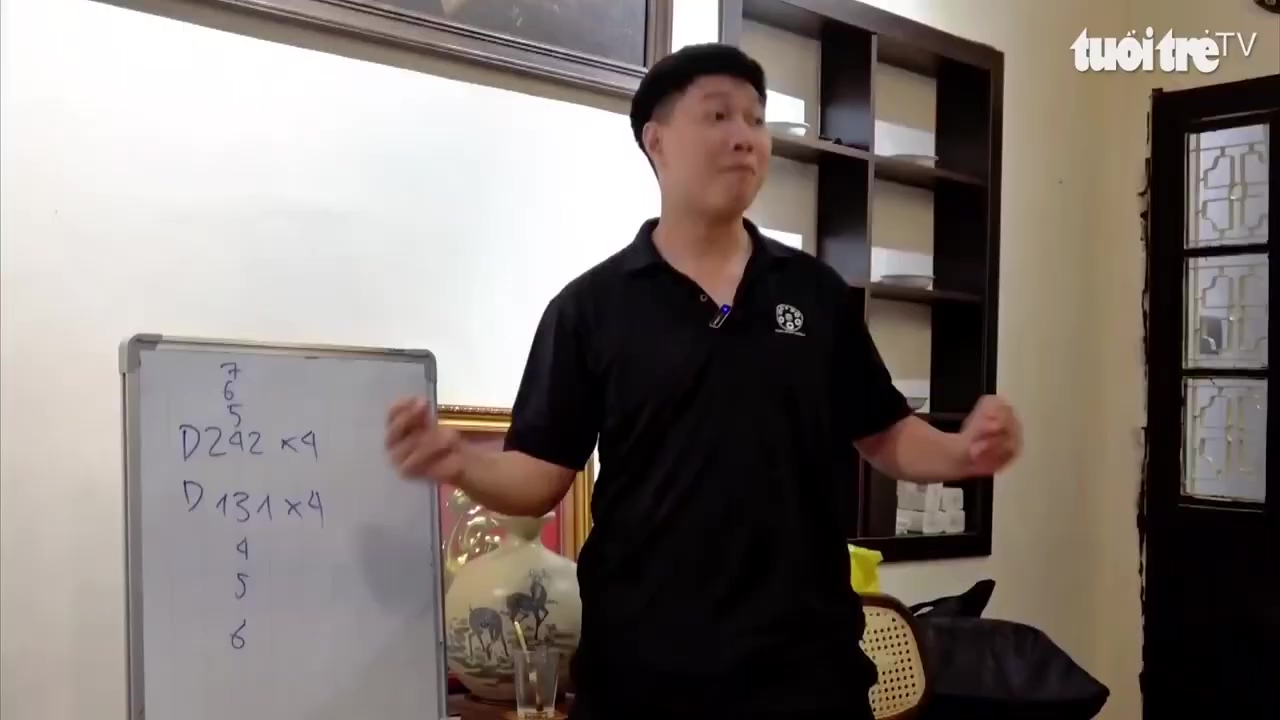 tuổi trẻ TV
7
6
5
D242 x4
D131 x4
4
5
6